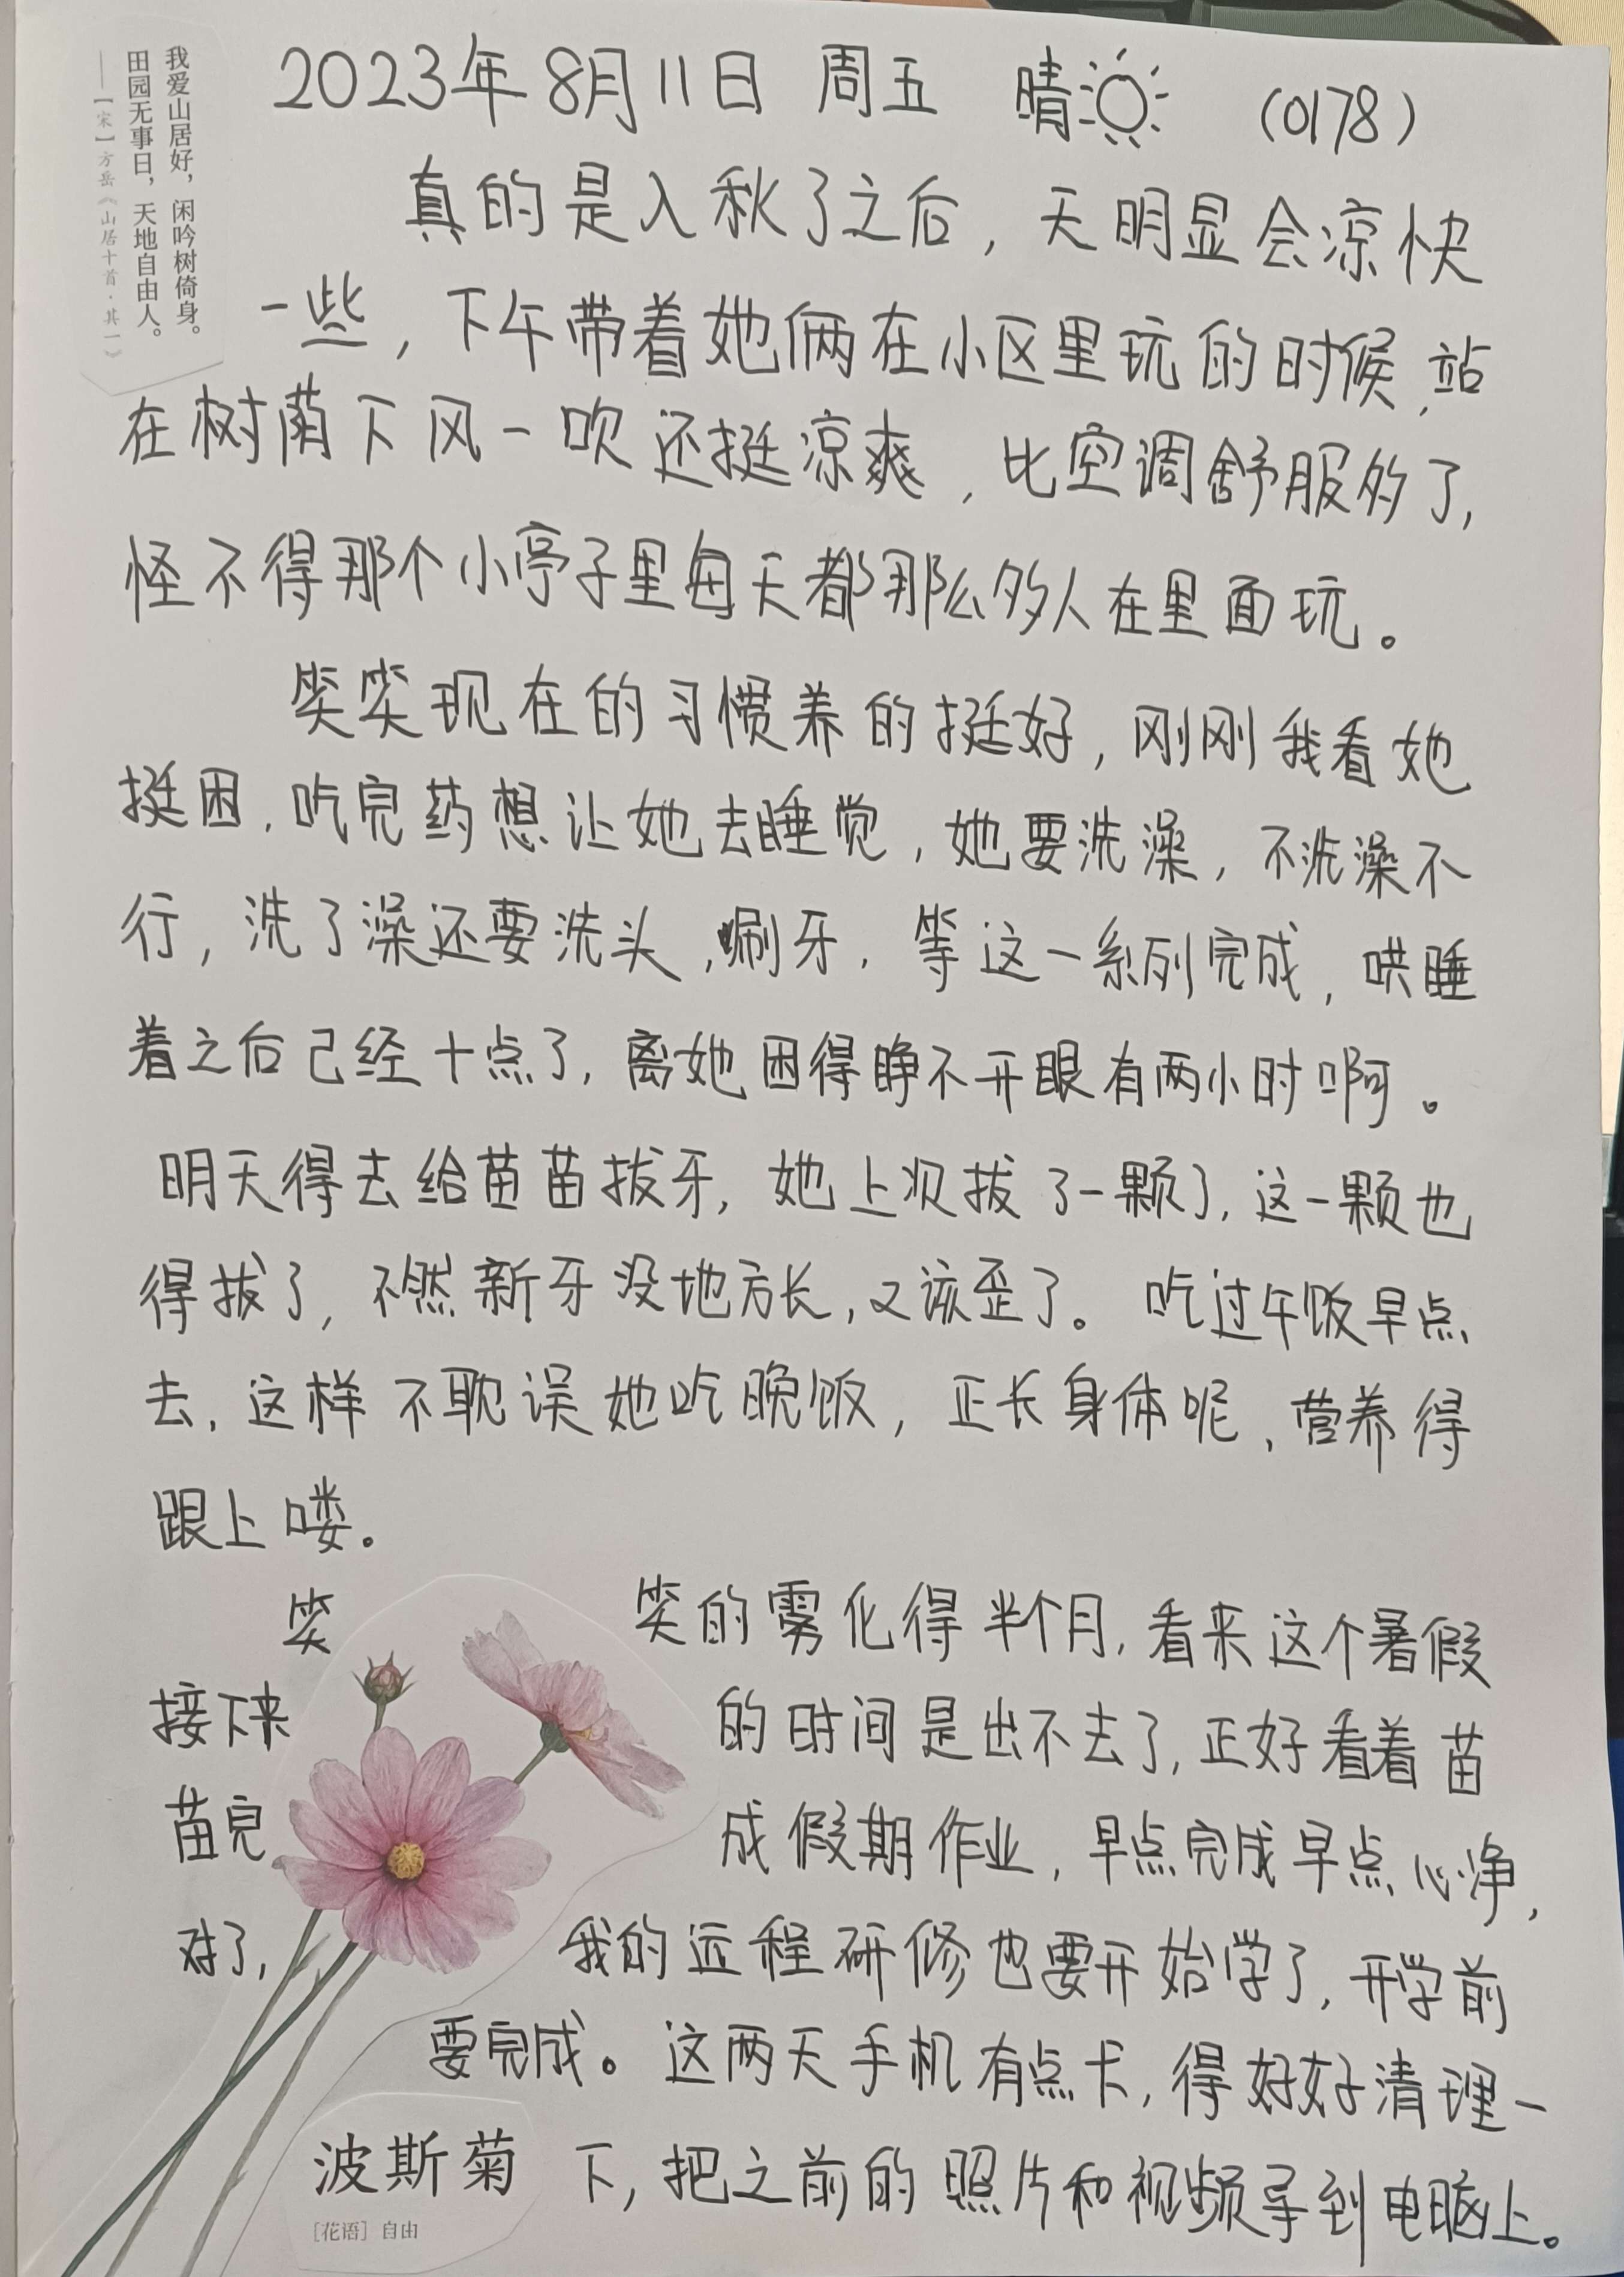 我爱山居好，闲吟树倚身。
田园无事日，天地自由人。
——【宋】方岳《山居十首·其一》
2023年8月11日 周五 晴 (0178)
真的是入秋了之后，天明显会凉快
一些，下午带着她俩在小区里玩的时候，站
在树荫下风一吹还挺凉爽，比空调舒服多了，
怪不得那个小亭子里每天都那么多人在里面玩。
笑笑现在的习惯养的挺好，刚刚我看她
挺困，吃完药想让她去睡觉，她要洗澡，不洗澡不
行，洗了澡还要洗头，刷牙，等这一系列完成，哄睡
着之后已经十点了，离她困得睁不开眼有两小时啊。
明天得去给苗苗拔牙，她上次拔了一颗了，这一颗也
得拔了，不然新牙没地方长，又该歪了。吃过午饭早点
去，这样不耽误她吃晚饭，正长身体呢，营养得
跟上喽。
笑笑的雾化得半个月，看来这个暑假
接下来的时间是出不去了，正好看着苗
苗完成假期作业，早点完成早点心净，
对了，我的远程研修也要开始学了，开学前
要完成。这两天手机有点卡，得好好清理一
下，把之前的照片和视频导到电脑上。
波斯菊
[花语] 自由